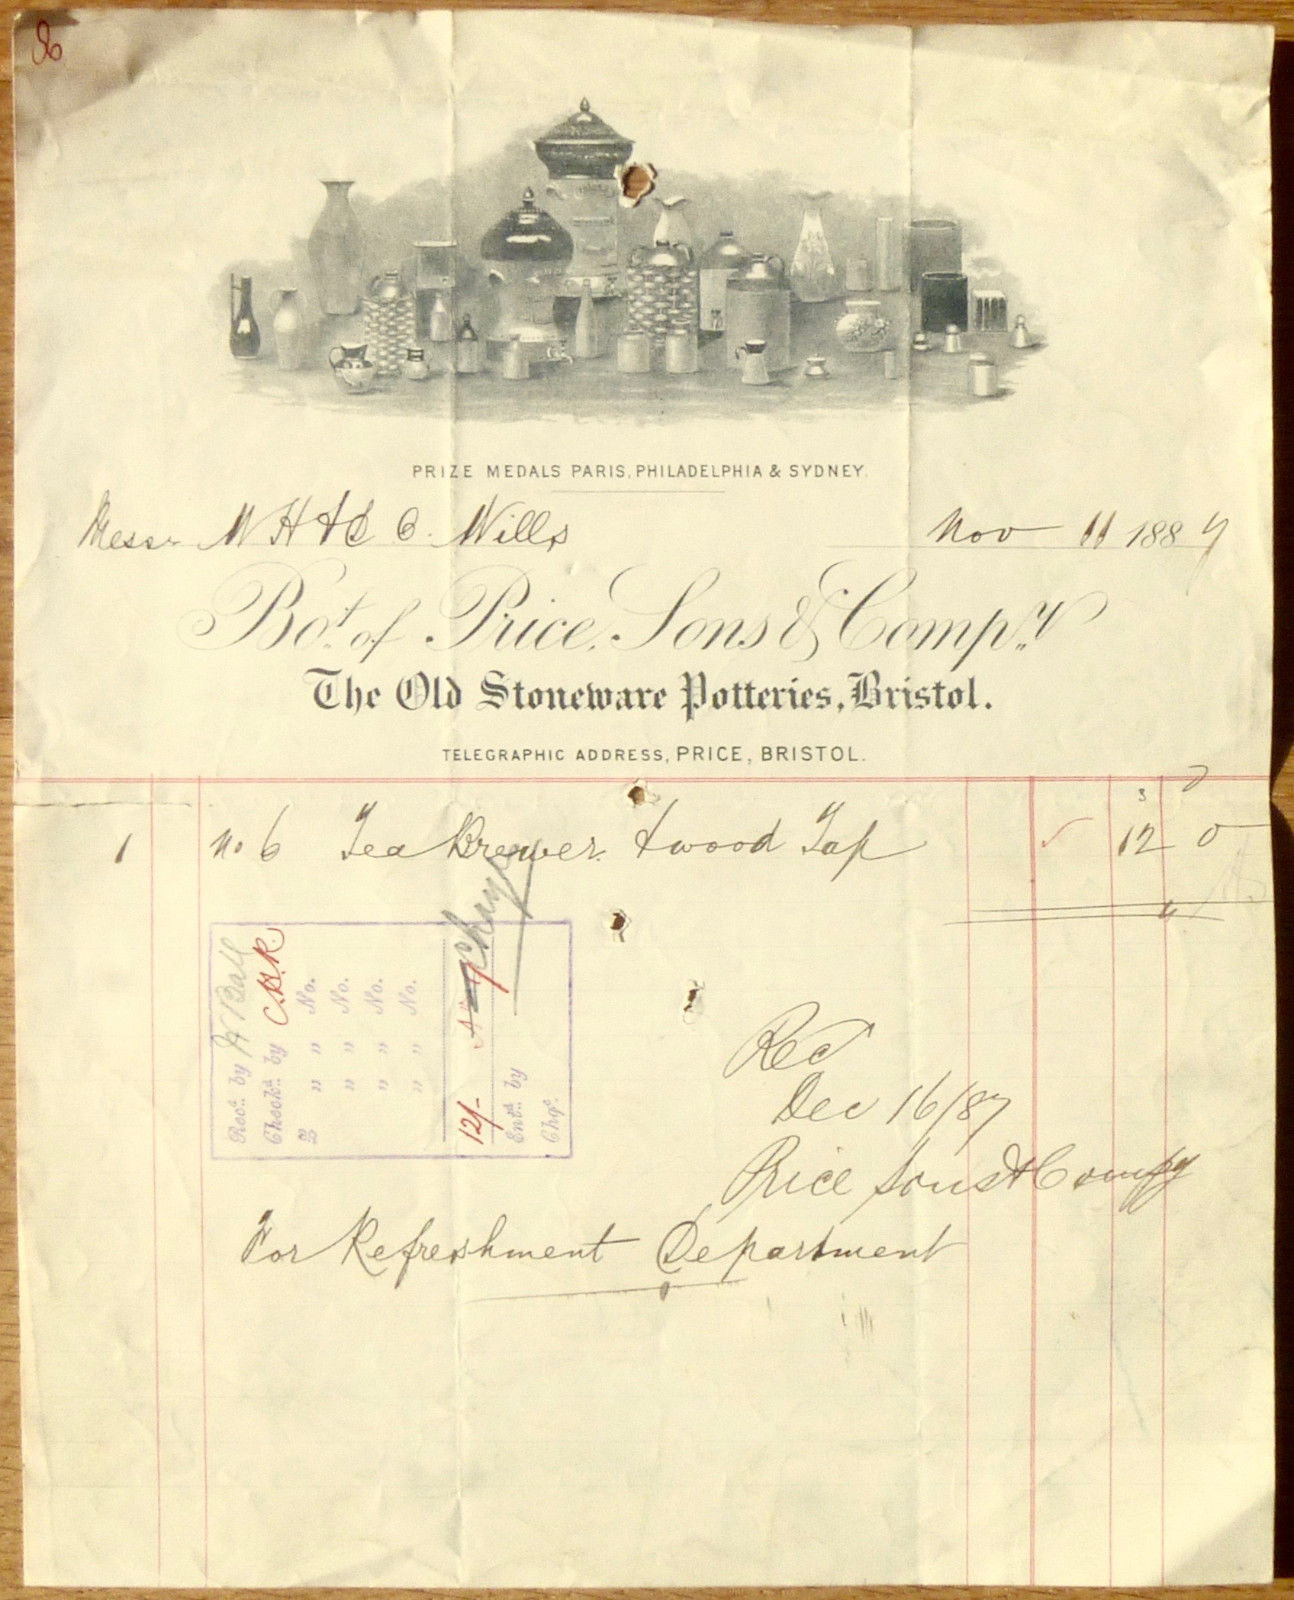 PRIZE MEDALS PARIS, PHILADELPHIA & SYDNEY.
Messr W H & D O Wills
Nov 11 1887
Bot. of Price, Sons & Compy.
The Old Stoneware Potteries, Bristol.
TELEGRAPHIC ADDRESS, PRICE, BRISTOL.
s d
1 No 6 Tea Brewer & wood Tap 12 0
Recd. by W Ball
Checkd. by C.B.R.
" " No.
" " No.
" " No.
" " No.
12/-
Entd. by
Chqe.
Recd
Dec 16/87
Price Sons & Compy
For Refreshment Department